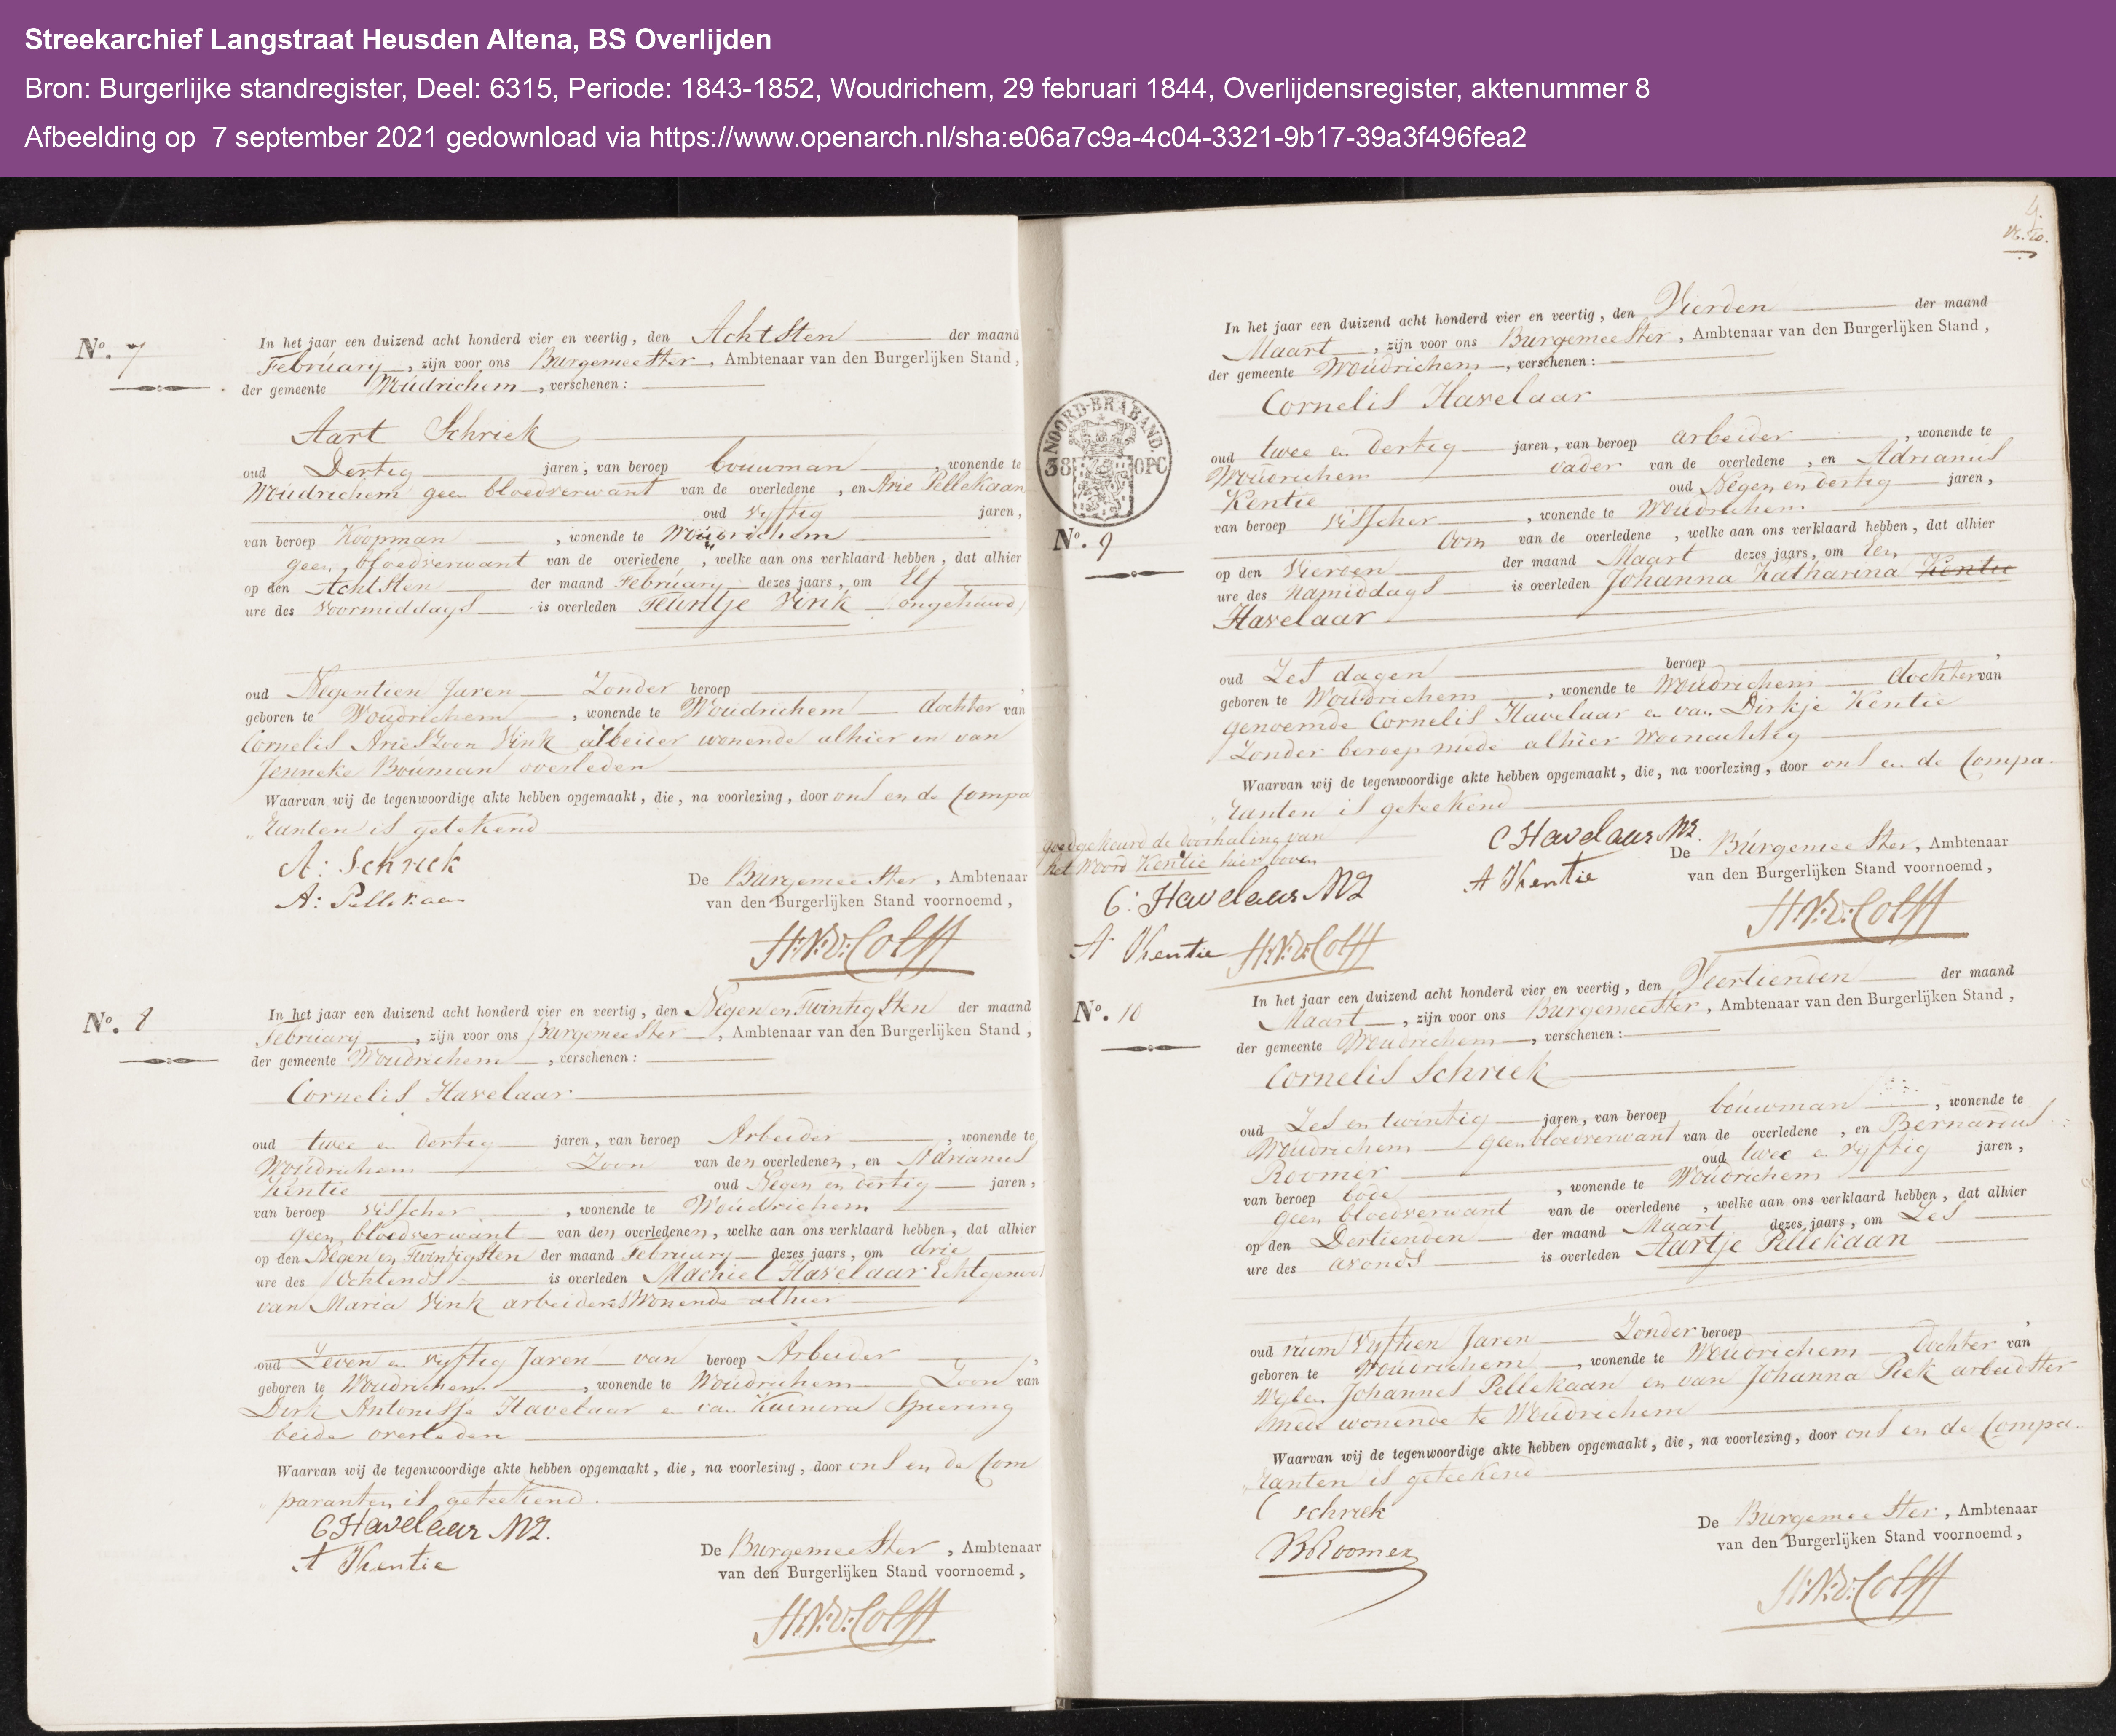 Streekarchief Langstraat Heusden Altena, BS Overlijden
Bron: Burgerlijke standregister, Deel: 6315, Periode: 1843-1852, Woudrichem, 29 februari 1844, Overlijdensregister, aktenummer 8
Afbeelding op 7 september 2021 gedownload via https://www.openarch.nl/sha:e06a7c9a-4c04-3321-9b17-39a3f496fea2
No. 7
In het jaar een duizend acht honderd vier en veertig, den Achtsten der maand
February, zijn voor ons Burgemeester, Ambtenaar van den Burgerlijken Stand,
der gemeente Woudrichem, verschenen:
Aart Schriek
oud Dertig jaren, van beroep bouwman, wonende te
Woudrichem geen bloedverwant van de overledene, en Arie Pellekaan
oud vyftig jaren,
van beroep Koopman, wonende te Woudrichem
geen bloedverwant van de overledene, welke aan ons verklaard hebben, dat alhier
op den Achtsten der maand February dezes jaars, om Elf
ure des voormiddags is overleden Teuntje Vink (ongehuwd)
oud Negentien Jaren Zonder beroep,
geboren te Woudrichem, wonende te Woudrichem dochter van
Cornelis Arieszoon Vink arbeider wonende alhier en van
Jenneke Bouman overleden
Waarvan wij de tegenwoordige akte hebben opgemaakt, die, na voorlezing, door ons en de Compa
ranten is getekend
A: Schriek
A: Pellekaan
De Burgemeester, Ambtenaar
van den Burgerlijken Stand voornoemd,
H:N:v:Colff
No. 8
In het jaar een duizend acht honderd vier en veertig, den Negen en Twintigsten der maand
February, zijn voor ons Burgemeester, Ambtenaar van den Burgerlijken Stand,
der gemeente Woudrichem, verschenen:
Cornelis Havelaar
oud twee en dertig jaren, van beroep Arbeider, wonende te
Woudrichem Zoon van den overledenen, en Adrianus
Kentie oud Negen en dertig jaren,
van beroep visscher, wonende te Woudrichem
geen bloedverwant van den overledenen, welke aan ons verklaard hebben, dat alhier
op den Negen en Twintigsten der maand February dezes jaars, om drie
ure des Ochtends is overleden Machiel Havelaar Echtgenoot
van Maria Vink arbeidersWonende alhier
oud Zeven en vyftig Jaren van beroep Arbeider,
geboren te Woudrichem, wonende te Woudrichem Zoon van
Dirk Antonisse Havelaar en van Kuinera Spiering
beide overleden
Waarvan wij de tegenwoordige akte hebben opgemaakt, die, na voorlezing, door ons en de Com
paranten is geteekend.
C Havelaar MZ.
A Khentie
De Burgemeester, Ambtenaar
van den Burgerlijken Stand voornoemd,
H:N:v:Colff
4.
NOORD-BRABAND.
38 OPC
No. 9
In het jaar een duizend acht honderd vier en veertig, den Vierden der maand
Maart, zijn voor ons Burgemeester, Ambtenaar van den Burgerlijken Stand,
der gemeente Woudrichem, verschenen:
Cornelis Havelaar
oud twee en dertig jaren, van beroep arbeider, wonende te
Woudrichem vader van de overledene, en Adrianus
Kentie oud Negen en dertig jaren,
van beroep visscher, wonende te Woudrichem
Oom van de overledene, welke aan ons verklaard hebben, dat alhier
op den Vierden der maand Maart dezes jaars, om Een
ure des namiddags is overleden Johanna Katharina Kentie
Havelaar
oud Zes dagen beroep,
geboren te Woudrichem, wonende te Woudrichem dochter van
genoemde Cornelis Havelaar en van Dirkje Kentie
Zonder beroep mede alhier Woonachtig
Waarvan wij de tegenwoordige akte hebben opgemaakt, die, na voorlezing, door ons en de Compa
ranten is geteekend
goedgekeurd de doorhaling van
het Woord Kentie hier boven
C Havelaar MZ.
A Khentie
C: Havelaar MZ
A Khentie H:N:v:Colff
De Burgemeester, Ambtenaar
van den Burgerlijken Stand voornoemd,
H:N:v:Colff
No. 10
In het jaar een duizend acht honderd vier en veertig, den Veertienden der maand
Maart, zijn voor ons Burgemeester, Ambtenaar van den Burgerlijken Stand,
der gemeente Woudrichem, verschenen:
Cornelis Schriek
oud Zes en twintig jaren, van beroep bouwman, wonende te
Woudrichem geen bloedverwant van de overledene, en Bernardus
Roomer oud twee en vyftig jaren,
van beroep bode, wonende te Woudrichem
geen bloedverwant van de overledene, welke aan ons verklaard hebben, dat alhier
op den Dertienden der maand Maart dezes jaars, om Zes
ure des avonds is overleden Aartje Pellekaan
oud ruim vyftien Jaren Zonder beroep,
geboren te Woudrichem, wonende te Woudrichem dochter van
Wylen Johannes Pellekaan en van Johanna Piek arbeidster
mede wonende te Woudrichem
Waarvan wij de tegenwoordige akte hebben opgemaakt, die, na voorlezing, door ons en de Compa
ranten is geteekend
C schriek
B Roomer
De Burgemeester, Ambtenaar
van den Burgerlijken Stand voornoemd,
H:N:v:Colff